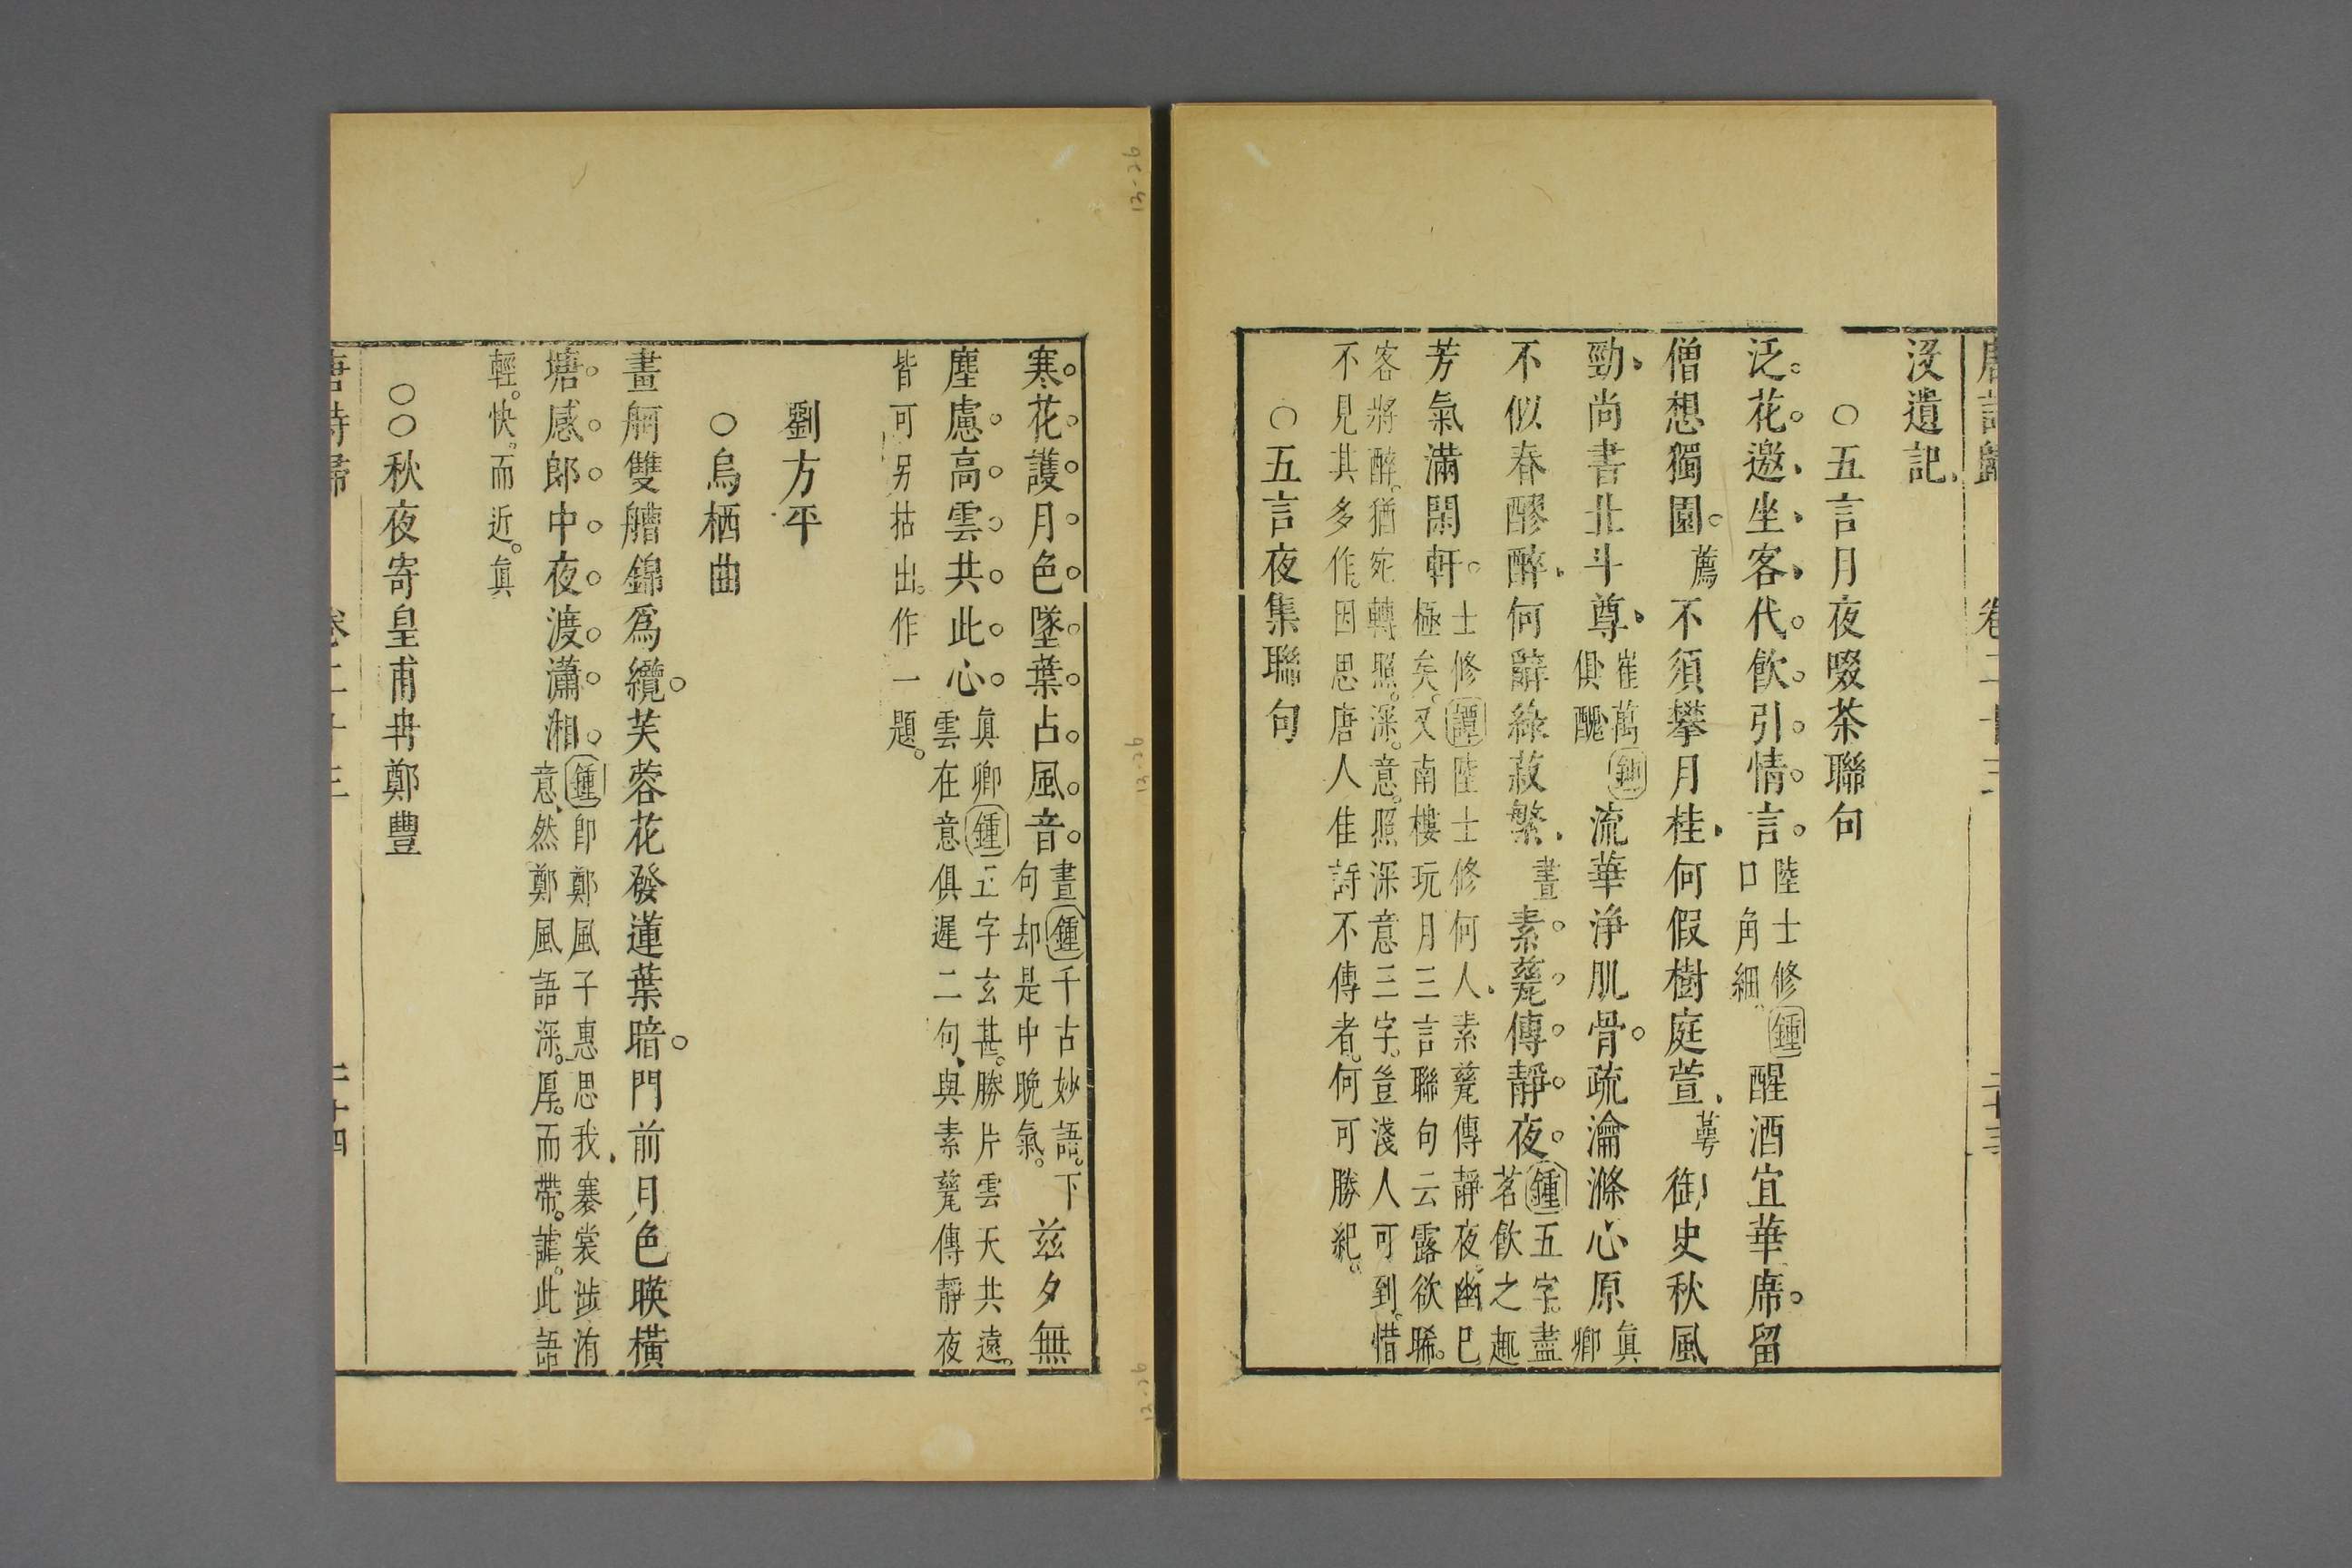 唐詩歸 卷二十三 二十三
沒遺記
○五言月夜啜茶聯句
泛花邀坐客代飲引情言陸士修鍾口角細醒酒宜華席留
僧想獨園薦不須攀月桂何假樹庭萱萼御史秋風
勁尚書北斗尊崔萬鍾俱醜流華淨肌骨疏瀹滌心原真卿
不似春醪醉何辭綠菽繁晝素甆傳靜夜鍾五字盡茗飲之趣
芳氣滿閑軒士修譚陸士修何人素甆傳靜夜幽已極矣又南樓玩月三言聯句云露欲晞
客將醉猶宛轉照深意照深意三字豈淺人可到惜
不見其多作因思唐人佳詩不傳者何可勝紀
○五言夜集聯句
寒花護月色墜葉占風音晝鍾千古妙語下句却是中晚氣茲夕無
塵慮高雲共此心真卿鍾五字玄甚勝片雲天共遠雲在意俱遲二句與素甆傳靜夜
皆可另拈出作一題
劉方平
○烏栖曲
畫舸雙艚錦爲纜芙蓉花發蓮葉暗門前月色暎橫
塘感郎中夜渡瀟湘鍾即鄭風子惠思我褰裳涉洧意然鄭風語深厚而帶謔此語
輕快而近真
○○秋夜寄皇甫冉鄭豐
唐詩歸 卷二十三 二十四